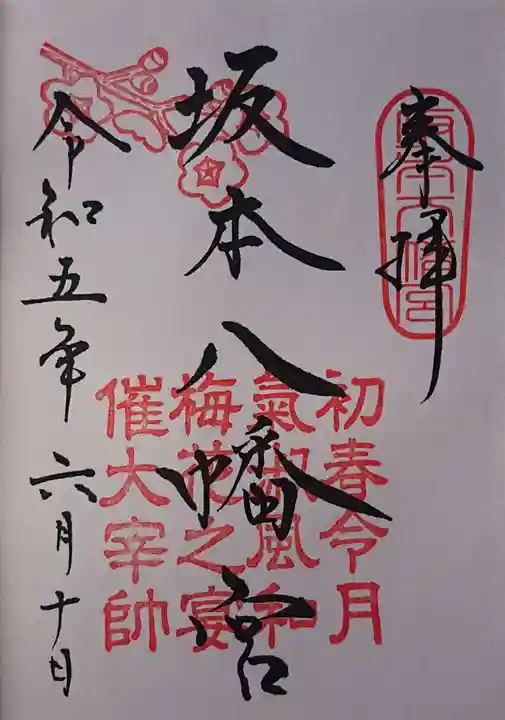 奉拝
坂本八幡宮
坂本八幡宮
初春令月
氣淑風和
梅花之宴
催大宰帥
令和五年六月十日